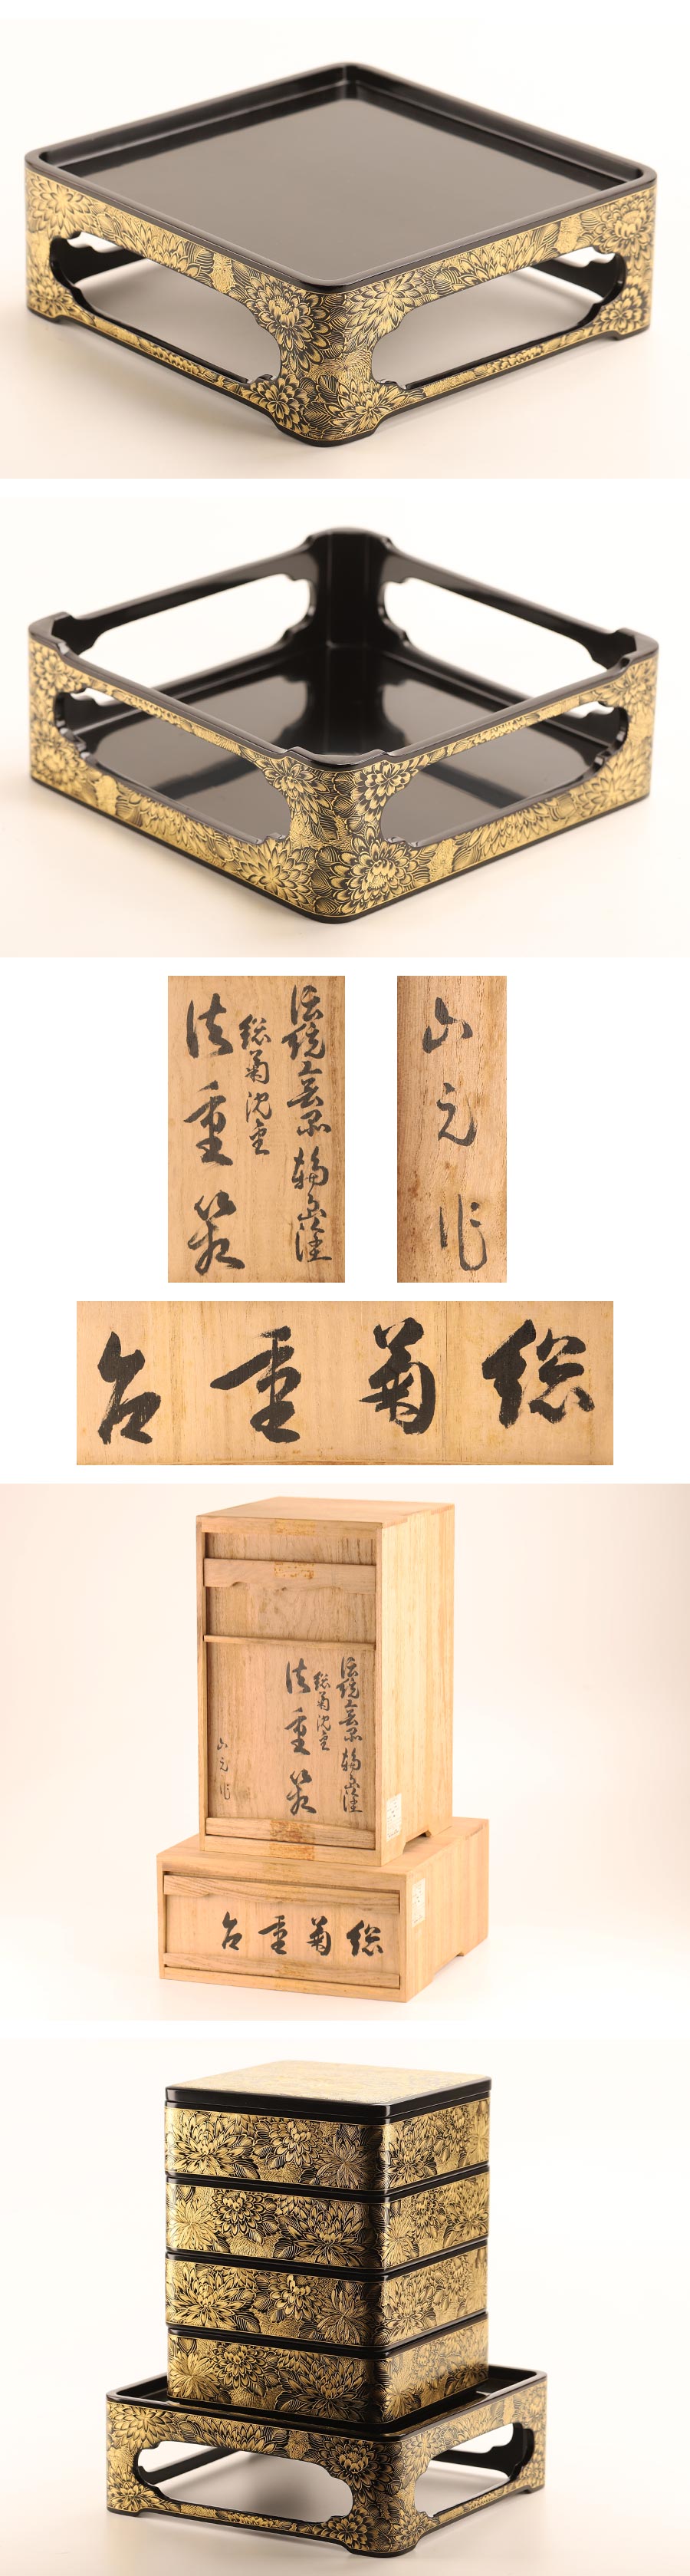 伝統工芸品 輪島塗
総菊沈金
法重箱
山元作
総菊重台
伝統工芸品 輪島塗
総菊沈金
法重箱
山元作
総菊重台